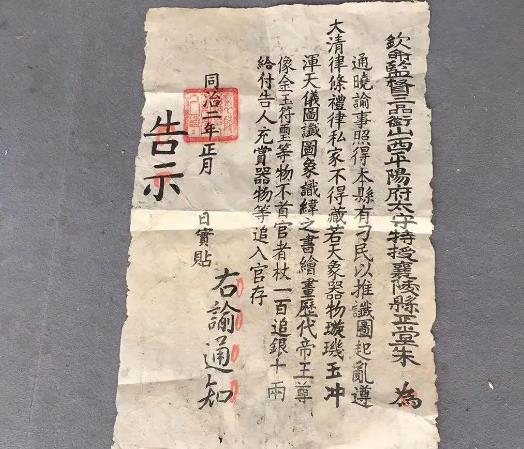 欽命監督三品銜山西平陽府太守特授襄陵縣正堂朱 為
通曉諭事照得本縣有刁民以推讖圖起亂遵
大清律條禮律私家不得藏若天象器物璇璣玉冲
渾天儀圖讖圖象識緯之書繪畫歷代帝王尊
像金玉符璽等物不首官者杖一百追銀十兩
給付告人充賞器物等追入官存
同治二年正月 日實貼
告示
右諭通知